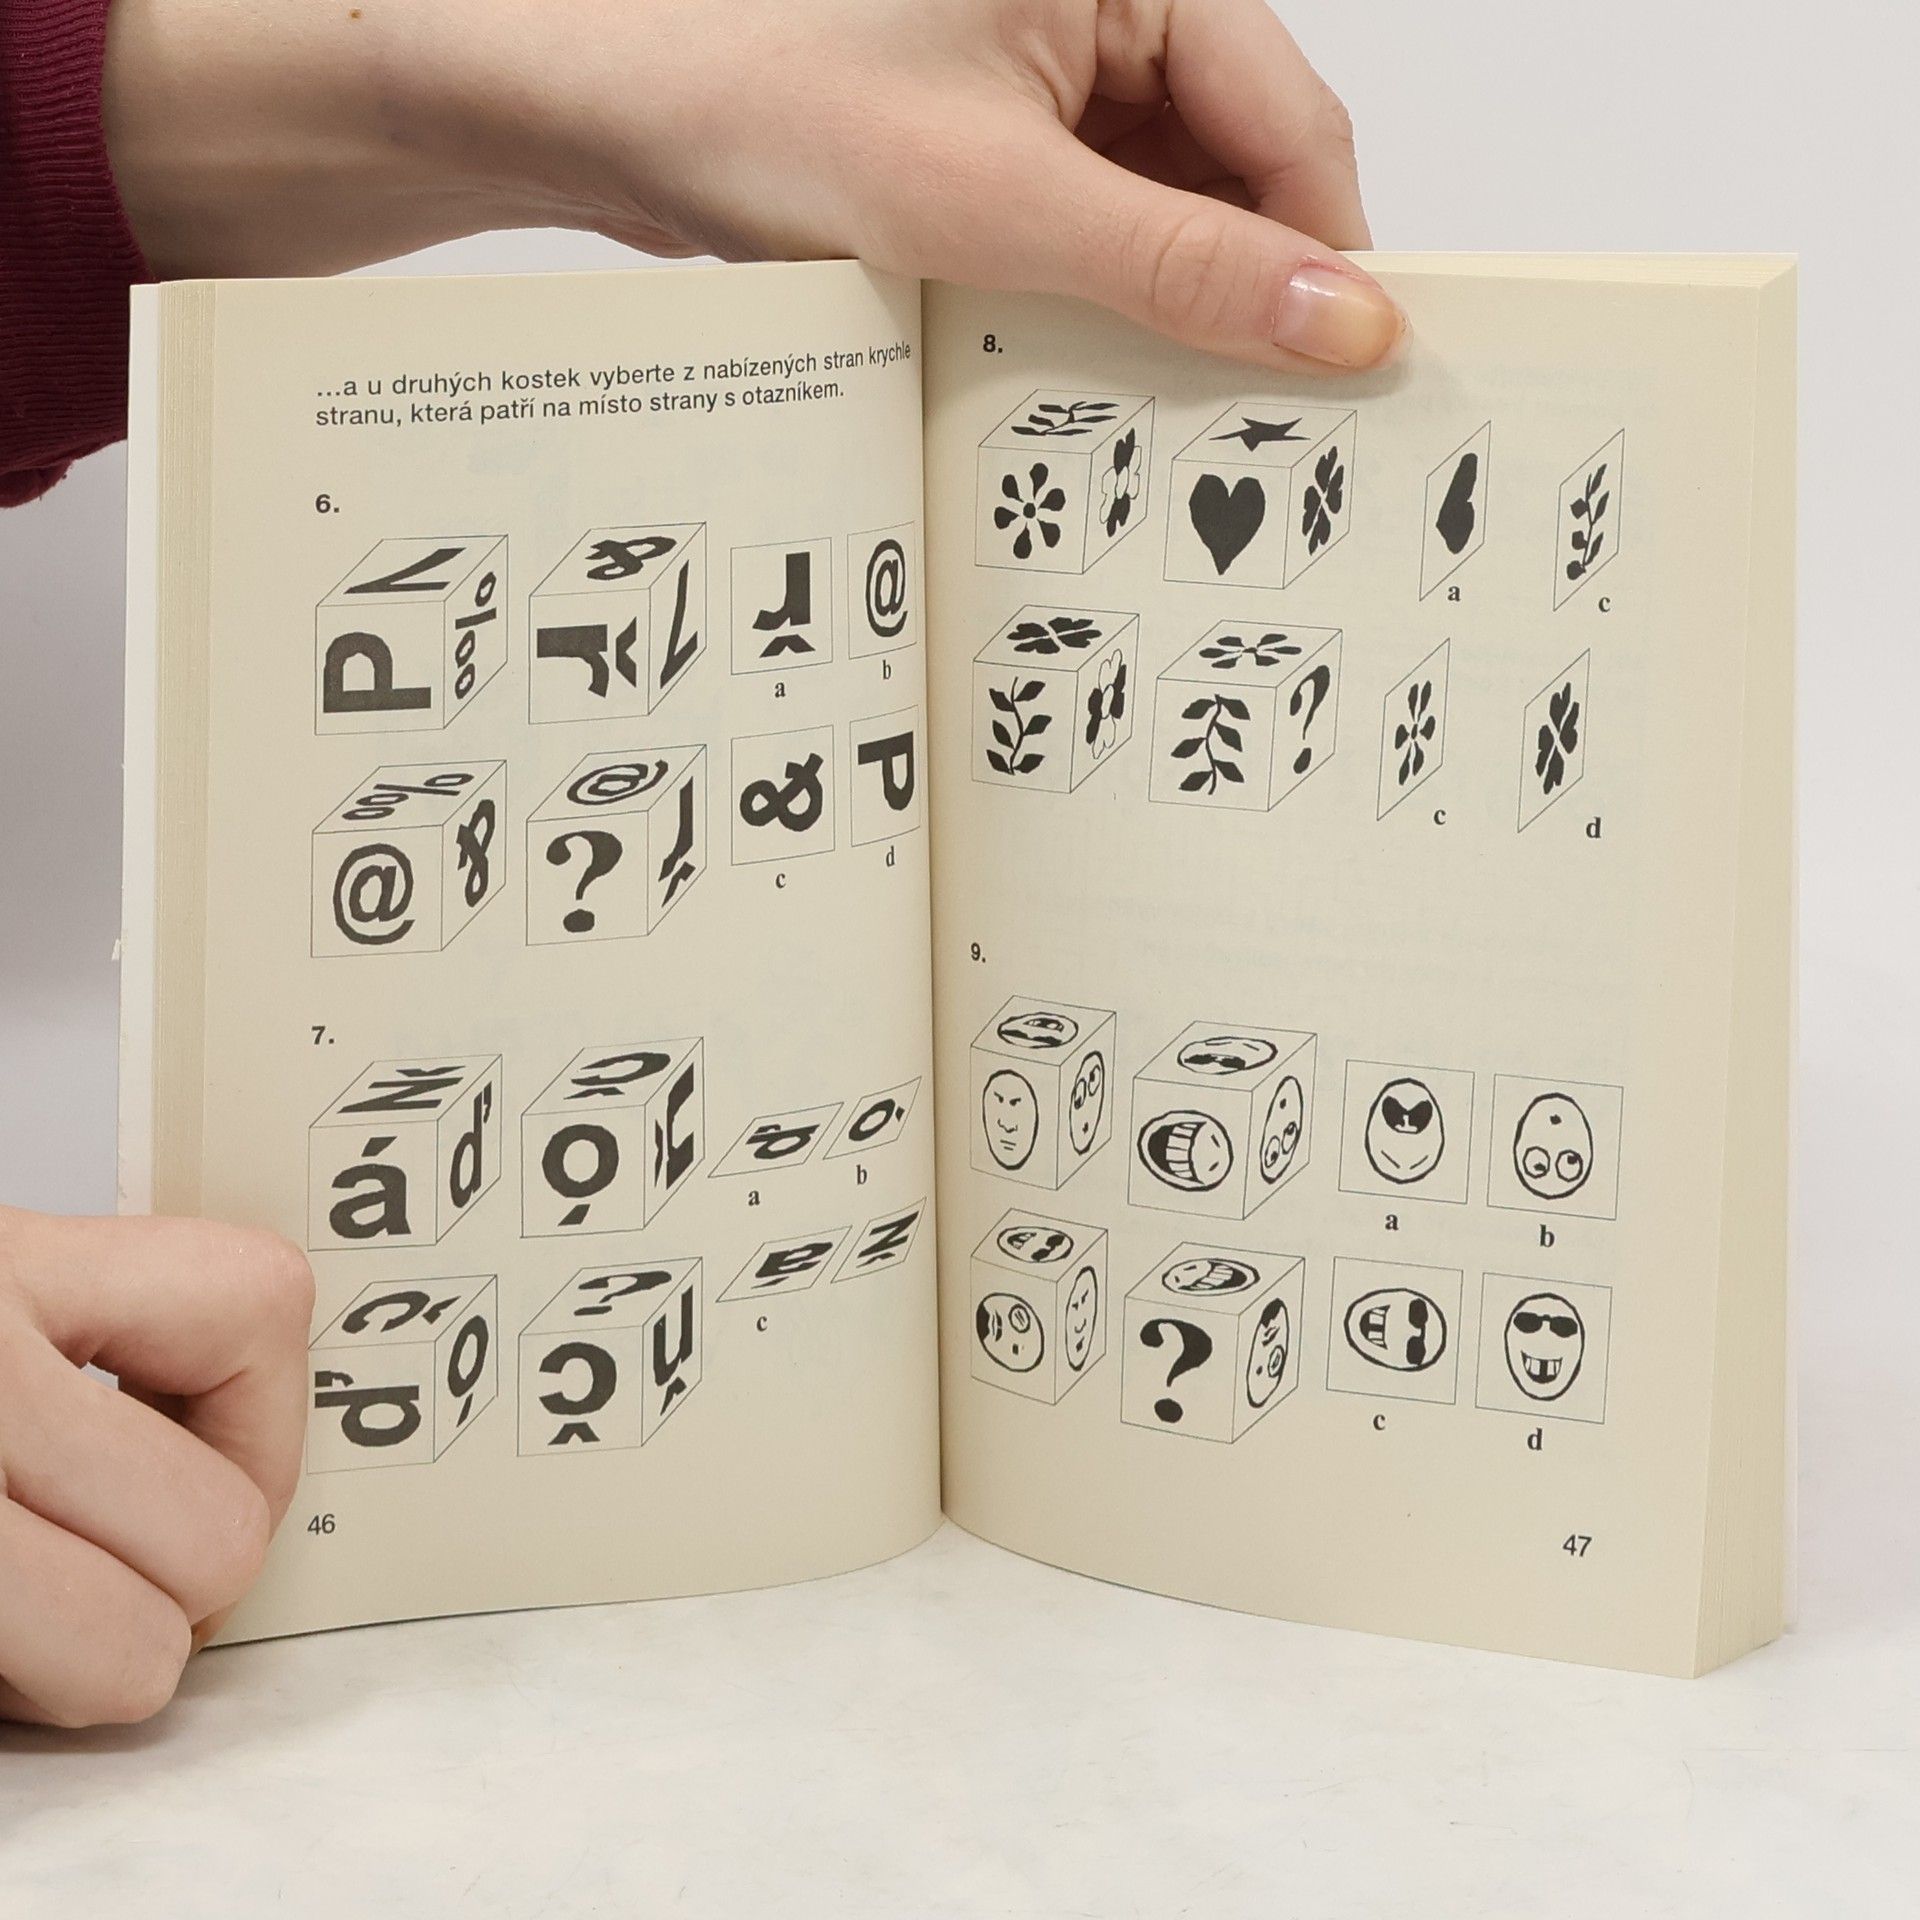 ...a u druhých kostek vyberte z nabízených stran krychle
stranu, která patří na místo strany s otazníkem.
6.
P
‰
&
ř
a
@
b
‰
@
&
@
?
ř
&
c
P
d
7.
Ň
á
ď
č
ó
ď
a
ó
b
ď
ó
?
č
á
c
Ň
46
8.
a
c
?
c
d
9.
a
b
?
c
d
47